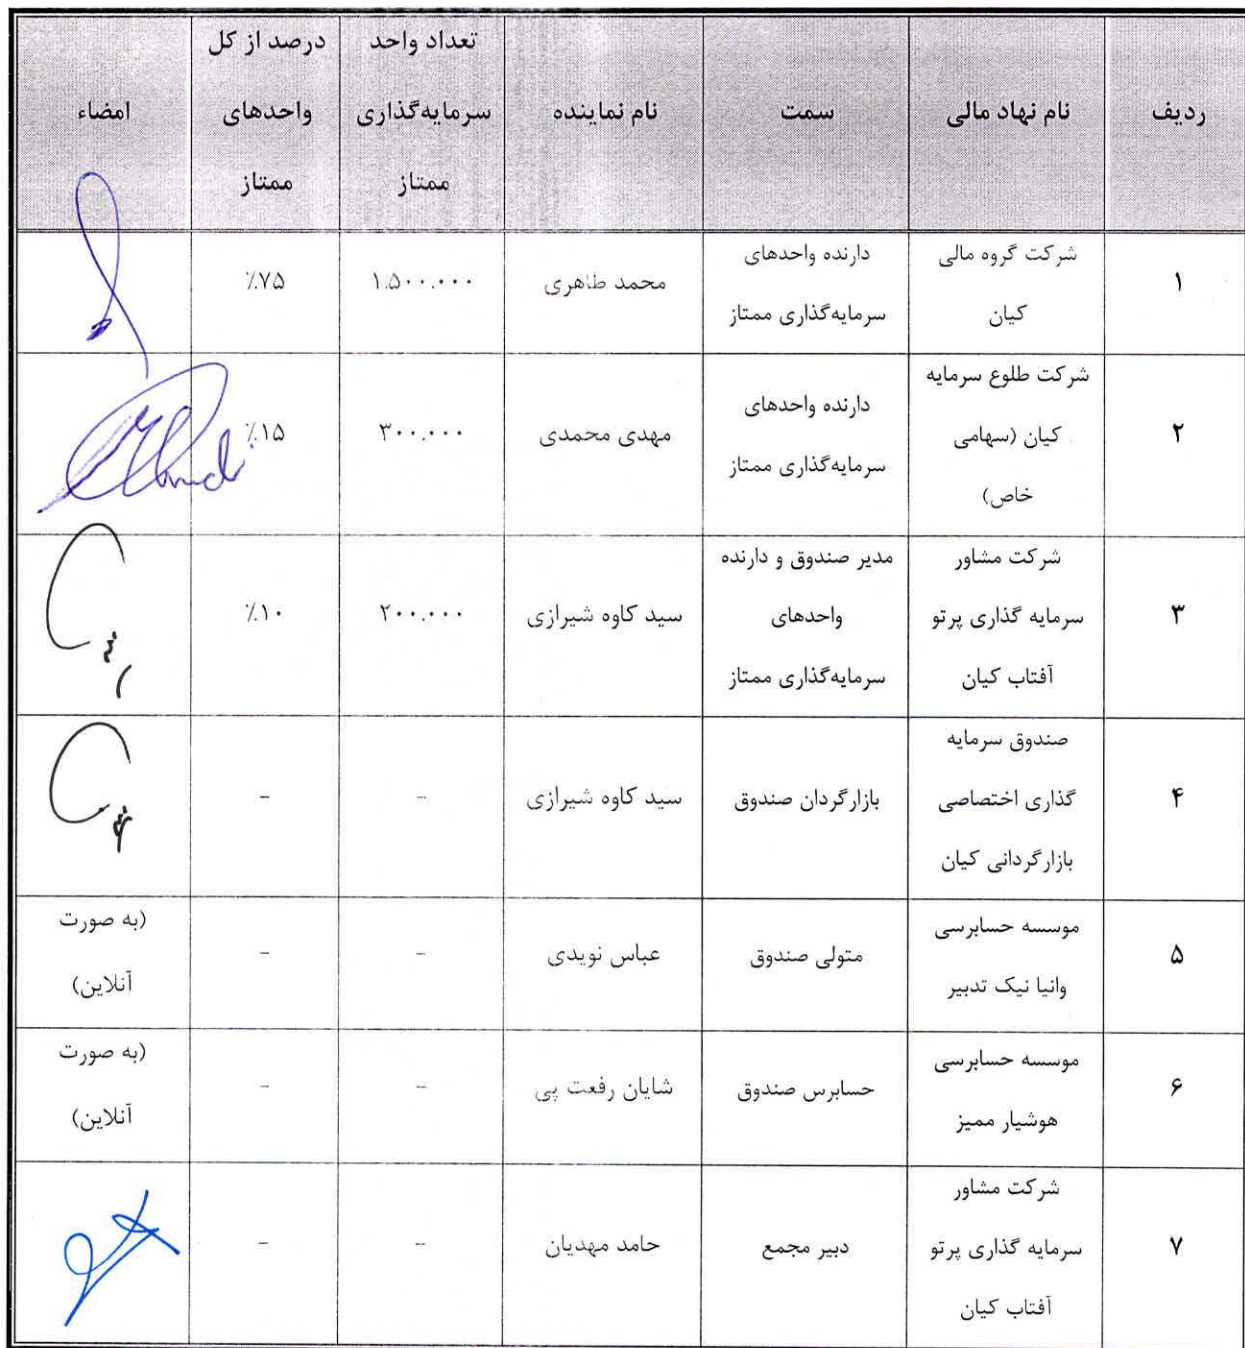 ردیف
نام نهاد مالی
سمت
نام نماینده
تعداد واحد
سرمایه‌گذاری
ممتاز
درصد از کل
واحدهای
ممتاز
امضاء
۱
شرکت گروه مالی
کیان
دارنده واحدهای
سرمایه‌گذاری ممتاز
محمد طاهری
۱.۵۰۰.۰۰۰
٪۷۵
۲
شرکت طلوع سرمایه
کیان (سهامی
خاص)
دارنده واحدهای
سرمایه‌گذاری ممتاز
مهدی محمدی
۳۰۰.۰۰۰
٪۱۵
۳
شرکت مشاور
سرمایه گذاری پرتو
آفتاب کیان
مدیر صندوق و دارنده
واحدهای
سرمایه‌گذاری ممتاز
سید کاوه شیرازی
۲۰۰.۰۰۰
٪۱۰
۴
صندوق سرمایه
گذاری اختصاصی
بازارگردانی کیان
بازارگردان صندوق
سید کاوه شیرازی
-
-
۵
موسسه حسابرسی
وانیا نیک تدبیر
متولی صندوق
عباس نویدی
-
-
(به صورت
آنلاین)
۶
موسسه حسابرسی
هوشیار ممیز
حسابرس صندوق
شایان رفعت پی
-
-
(به صورت
آنلاین)
۷
شرکت مشاور
سرمایه گذاری پرتو
آفتاب کیان
دبیر مجمع
حامد مهدیان
-
-